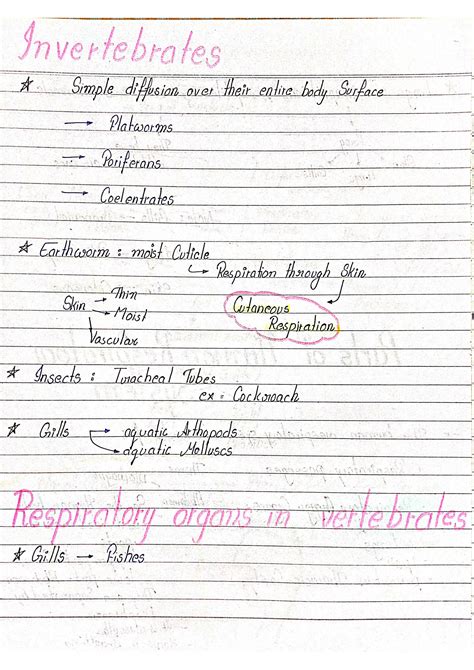 Invertebrates
☆ Simple diffusion over their entire body Surface
→ Platworms
→ Poriferans
→ Coelentrates
☆ Earthworm : moist Cuticle
↳ Respiration through Skin
Skin → Thin
→ Moist
Vascular
Cutaneous
Respiration
☆ Insects : Turacheal Tubes
ex = Cockroach
☆ Gills → aquatic Arthopods
→ aquatic Molluscs
Respiratory organs in vertebrates
☆ Gills → Fishes